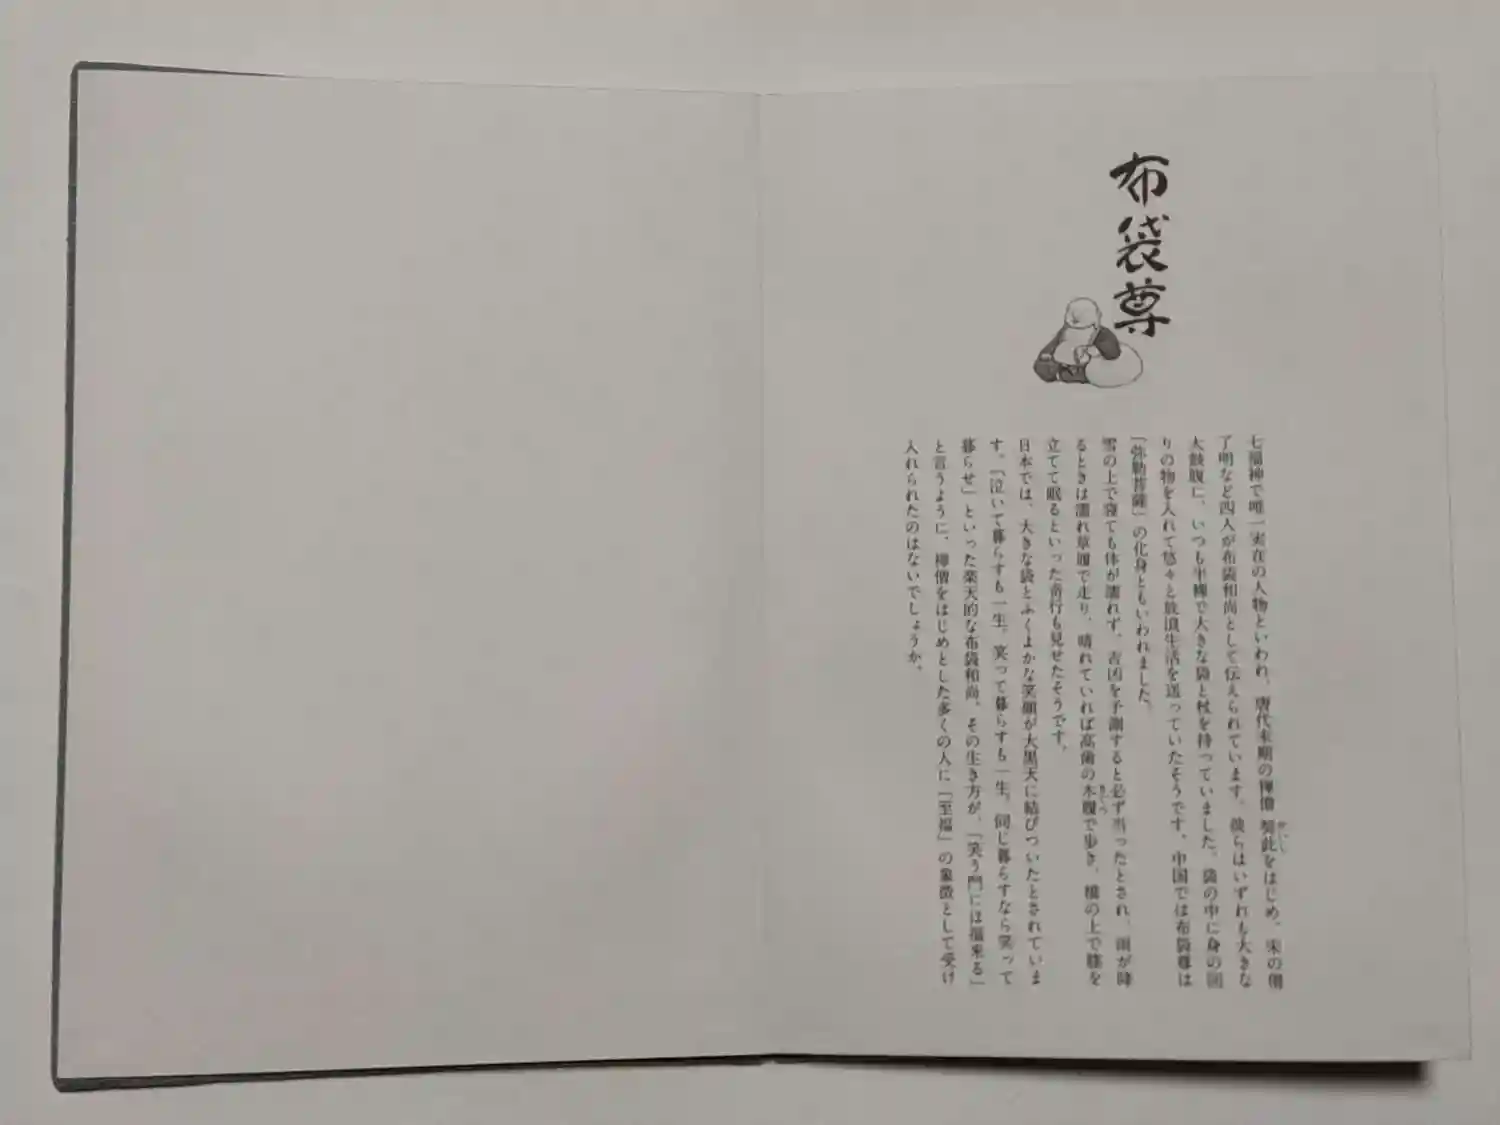 布袋尊
七福神で唯一実在の人物といわれ、唐代末期の禅僧 契此をはじめ、宋の僧
かいし
了明など四人が布袋和尚として伝えられています。彼らはいずれも大きな
太鼓腹に、いつも半裸で大きな袋と杖を持っていました。袋の中に身の回
りの物を入れて悠々と放浪生活を送っていたそうです。中国では布袋尊は
「弥勒菩薩」の化身ともいわれました。
雪の上で寝ても体が濡れず、吉凶を予測すると必ず当ったとされ、雨が降
るときは濡れ草履で走り、晴れていれば高歯の木履で歩き、橋の上で膝を
立てて眠るといった奇行も見せたそうです。
日本では、大きな袋とふくよかな笑顔が大黒天に結びついたとされていま
す。「泣いて暮らすも一生、笑って暮らすも一生、同じ暮らすなら笑って
暮らせ」といった楽天的な布袋和尚。その生き方が、「笑う門には福来る」
と言うように、禅僧をはじめとした多くの人に「至福」の象徴として受け
入れられたのはないでしょうか。